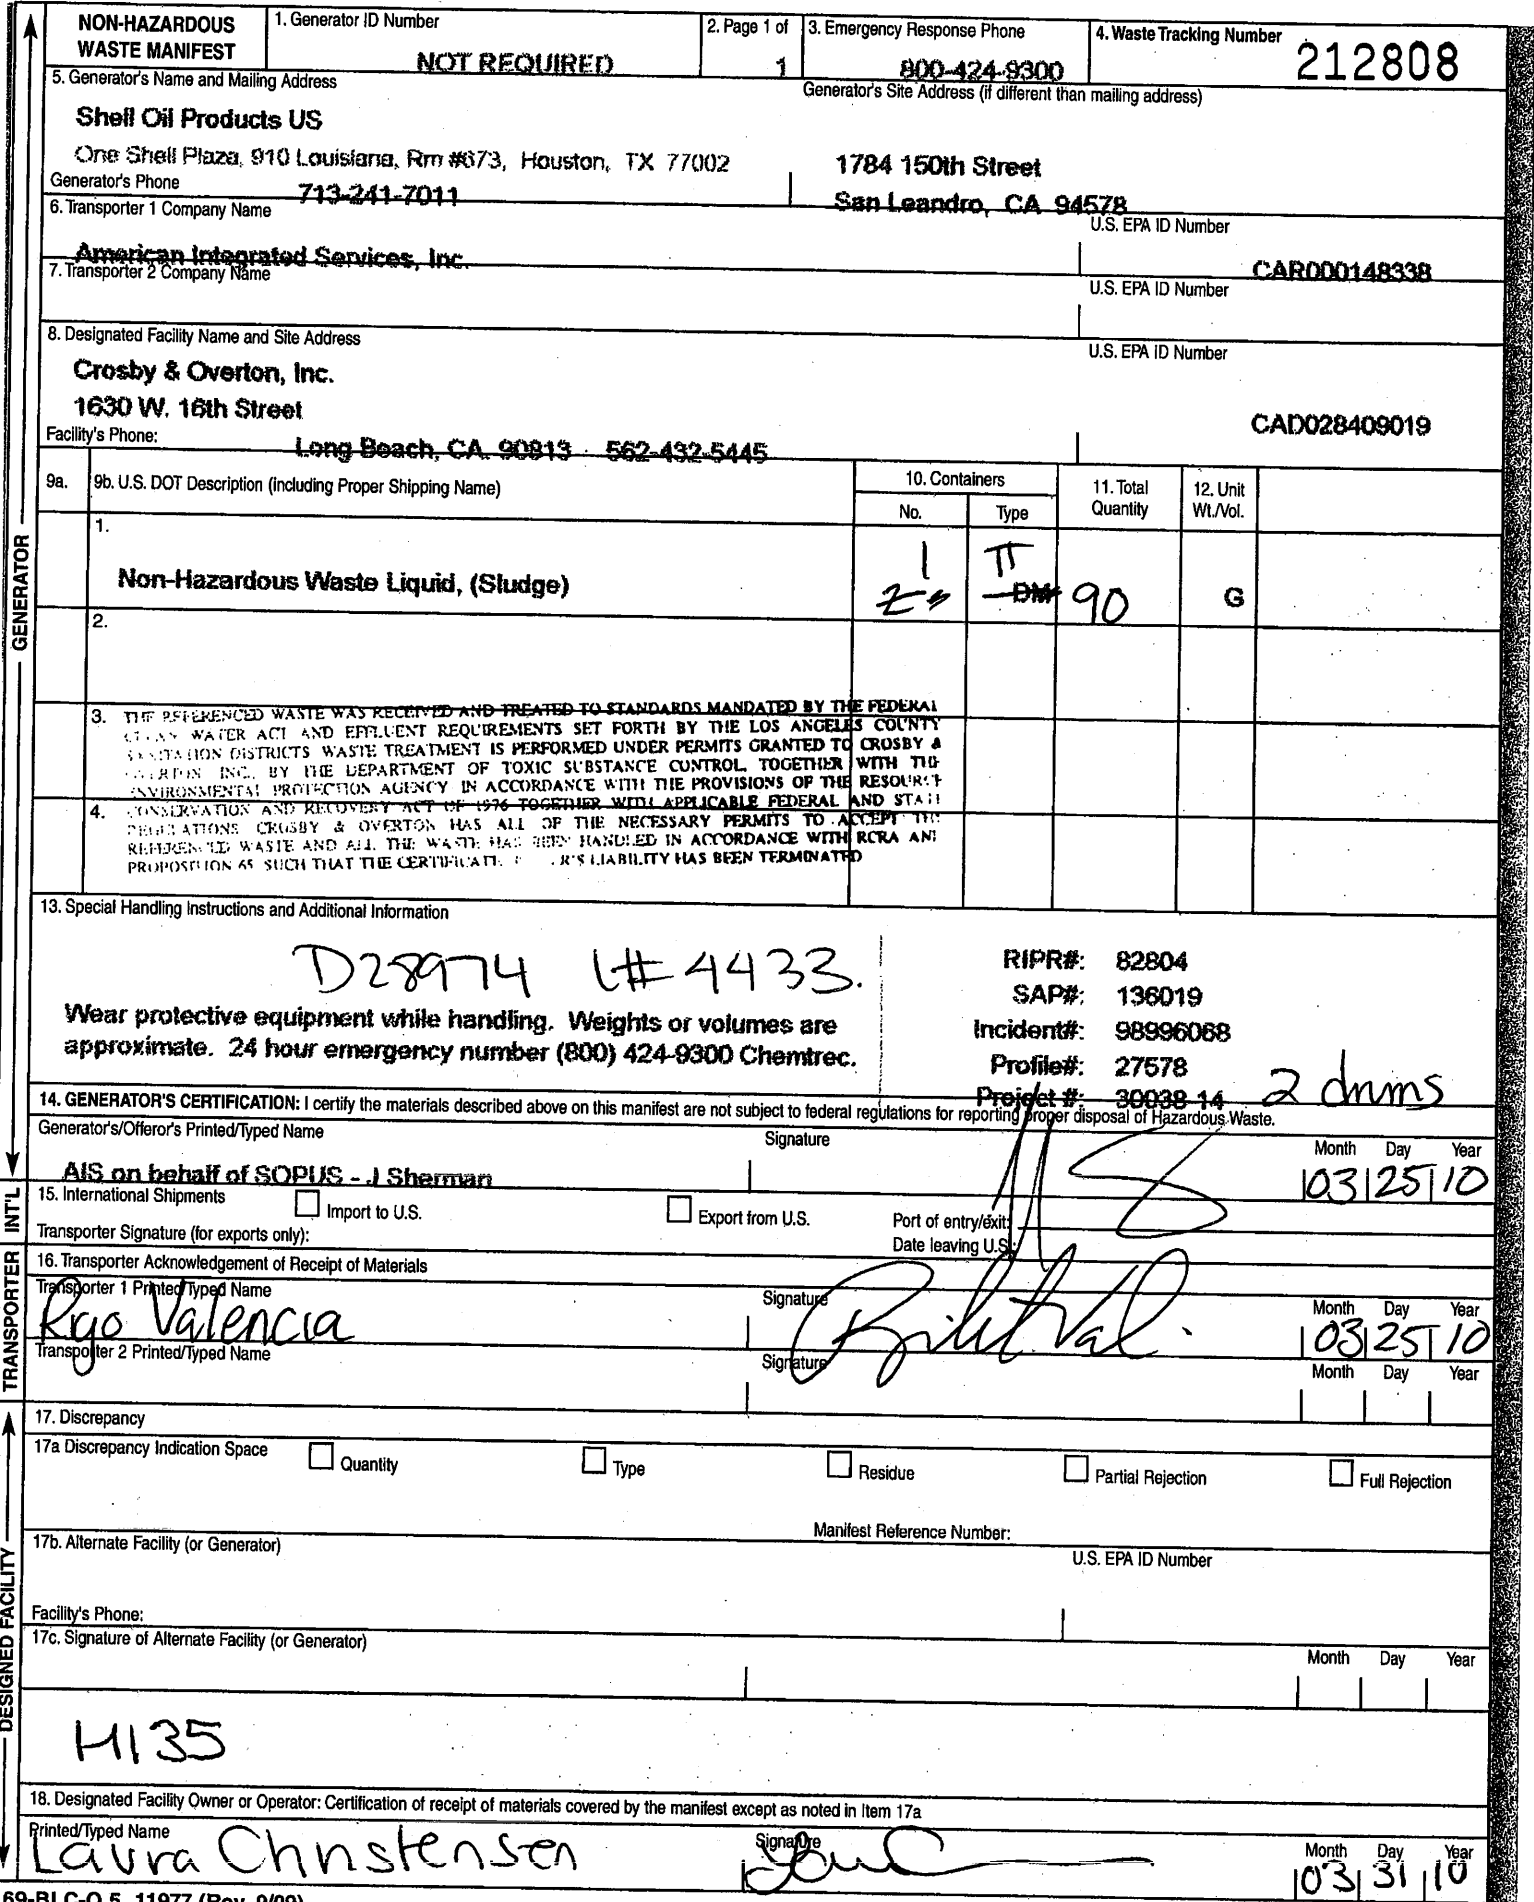 NON-HAZARDOUS WASTE MANIFEST
1. Generator ID Number
NOT REQUIRED
2. Page 1 of
1
3. Emergency Response Phone
800-424-9300
4. Waste Tracking Number
212808
5. Generator's Name and Mailing Address
Generator's Site Address (if different than mailing address)
Shell Oil Products US
One Shell Plaza, 910 Louisiana, Rm #673, Houston, TX 77002
1784 150th Street
Generator's Phone
713-241-7011
San Leandro, CA 94578
6. Transporter 1 Company Name
U.S. EPA ID Number
American Integrated Services, Inc.
CAR000148338
7. Transporter 2 Company Name
U.S. EPA ID Number
8. Designated Facility Name and Site Address
U.S. EPA ID Number
Crosby & Overton, Inc.
1630 W. 16th Street
CAD028409019
Facility's Phone:
Long Beach, CA. 90813 562-432-5445
9a.
9b. U.S. DOT Description (including Proper Shipping Name)
10. Containers
No.
Type
11. Total Quantity
12. Unit Wt./Vol.
1.
Non-Hazardous Waste Liquid, (Sludge)
1
TT
2
DM
90
G
2.
3.
THE REFERENCED WASTE WAS RECEIVED AND TREATED TO STANDARDS MANDATED BY THE FEDERAL
CLEAN WATER ACT AND EFFLUENT REQUIREMENTS SET FORTH BY THE LOS ANGELES COUNTY
SANITATION DISTRICTS WASTE TREATMENT IS PERFORMED UNDER PERMITS GRANTED TO CROSBY &
OVERTON INC. BY THE DEPARTMENT OF TOXIC SUBSTANCE CONTROL, TOGETHER WITH THE
ENVIRONMENTAL PROTECTION AGENCY IN ACCORDANCE WITH THE PROVISIONS OF THE RESOURCE
4.
CONSERVATION AND RECOVERY ACT OF 1976 TOGETHER WITH APPLICABLE FEDERAL AND STATE
REGULATIONS CROSBY & OVERTON HAS ALL OF THE NECESSARY PERMITS TO ACCEPT THE
REFERENCED WASTE AND ALL THE WASTE HAS BEEN HANDLED IN ACCORDANCE WITH RCRA AND
PROPOSITION 65 SUCH THAT THE CERTIFICATE R'S LIABILITY HAS BEEN TERMINATED
13. Special Handling Instructions and Additional Information
D28974 L# 4433.
Wear protective equipment while handling. Weights or volumes are
approximate. 24 hour emergency number (800) 424-9300 Chemtrec.
RIPR#: 82804
SAP#: 136019
Incident#: 98996068
Profile#: 27578
Project #: 30038-14
2 drums
14. GENERATOR'S CERTIFICATION: I certify the materials described above on this manifest are not subject to federal regulations for reporting proper disposal of Hazardous Waste.
Generator's/Offeror's Printed/Typed Name
Signature
Month Day Year
AIS on behalf of SOPUS - J Sherman
03 25 10
15. International Shipments
Import to U.S.
Export from U.S.
Port of entry/exit:
Transporter Signature (for exports only):
Date leaving U.S.:
16. Transporter Acknowledgement of Receipt of Materials
Transporter 1 Printed/Typed Name
Signature
Month Day Year
Rigo Valencia
03 25 10
Transporter 2 Printed/Typed Name
Signature
Month Day Year
17. Discrepancy
17a Discrepancy Indication Space
Quantity
Type
Residue
Partial Rejection
Full Rejection
Manifest Reference Number:
17b. Alternate Facility (or Generator)
U.S. EPA ID Number
Facility's Phone:
17c. Signature of Alternate Facility (or Generator)
Month Day Year
H135
18. Designated Facility Owner or Operator: Certification of receipt of materials covered by the manifest except as noted in Item 17a
Printed/Typed Name
Signature
Month Day Year
Laura Christensen
03 31 10
69-BLC-O 5 11977 (Rev. 9/09)
GENERATOR
INT'L
TRANSPORTER
DESIGNED FACILITY